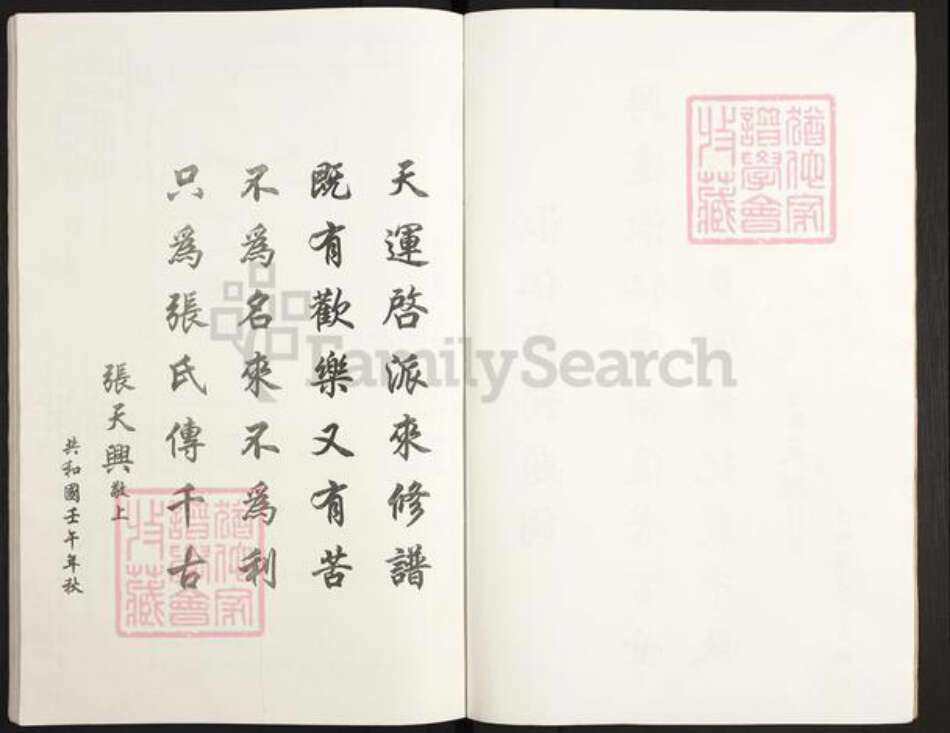 天運啓派來修譜
既有歡樂又有苦
不爲名來不爲利
只爲張氏傳千古
張天興敬上
共和國壬午年秋
猶他家譜學會收藏
猶他家譜學會收藏
FamilySearch